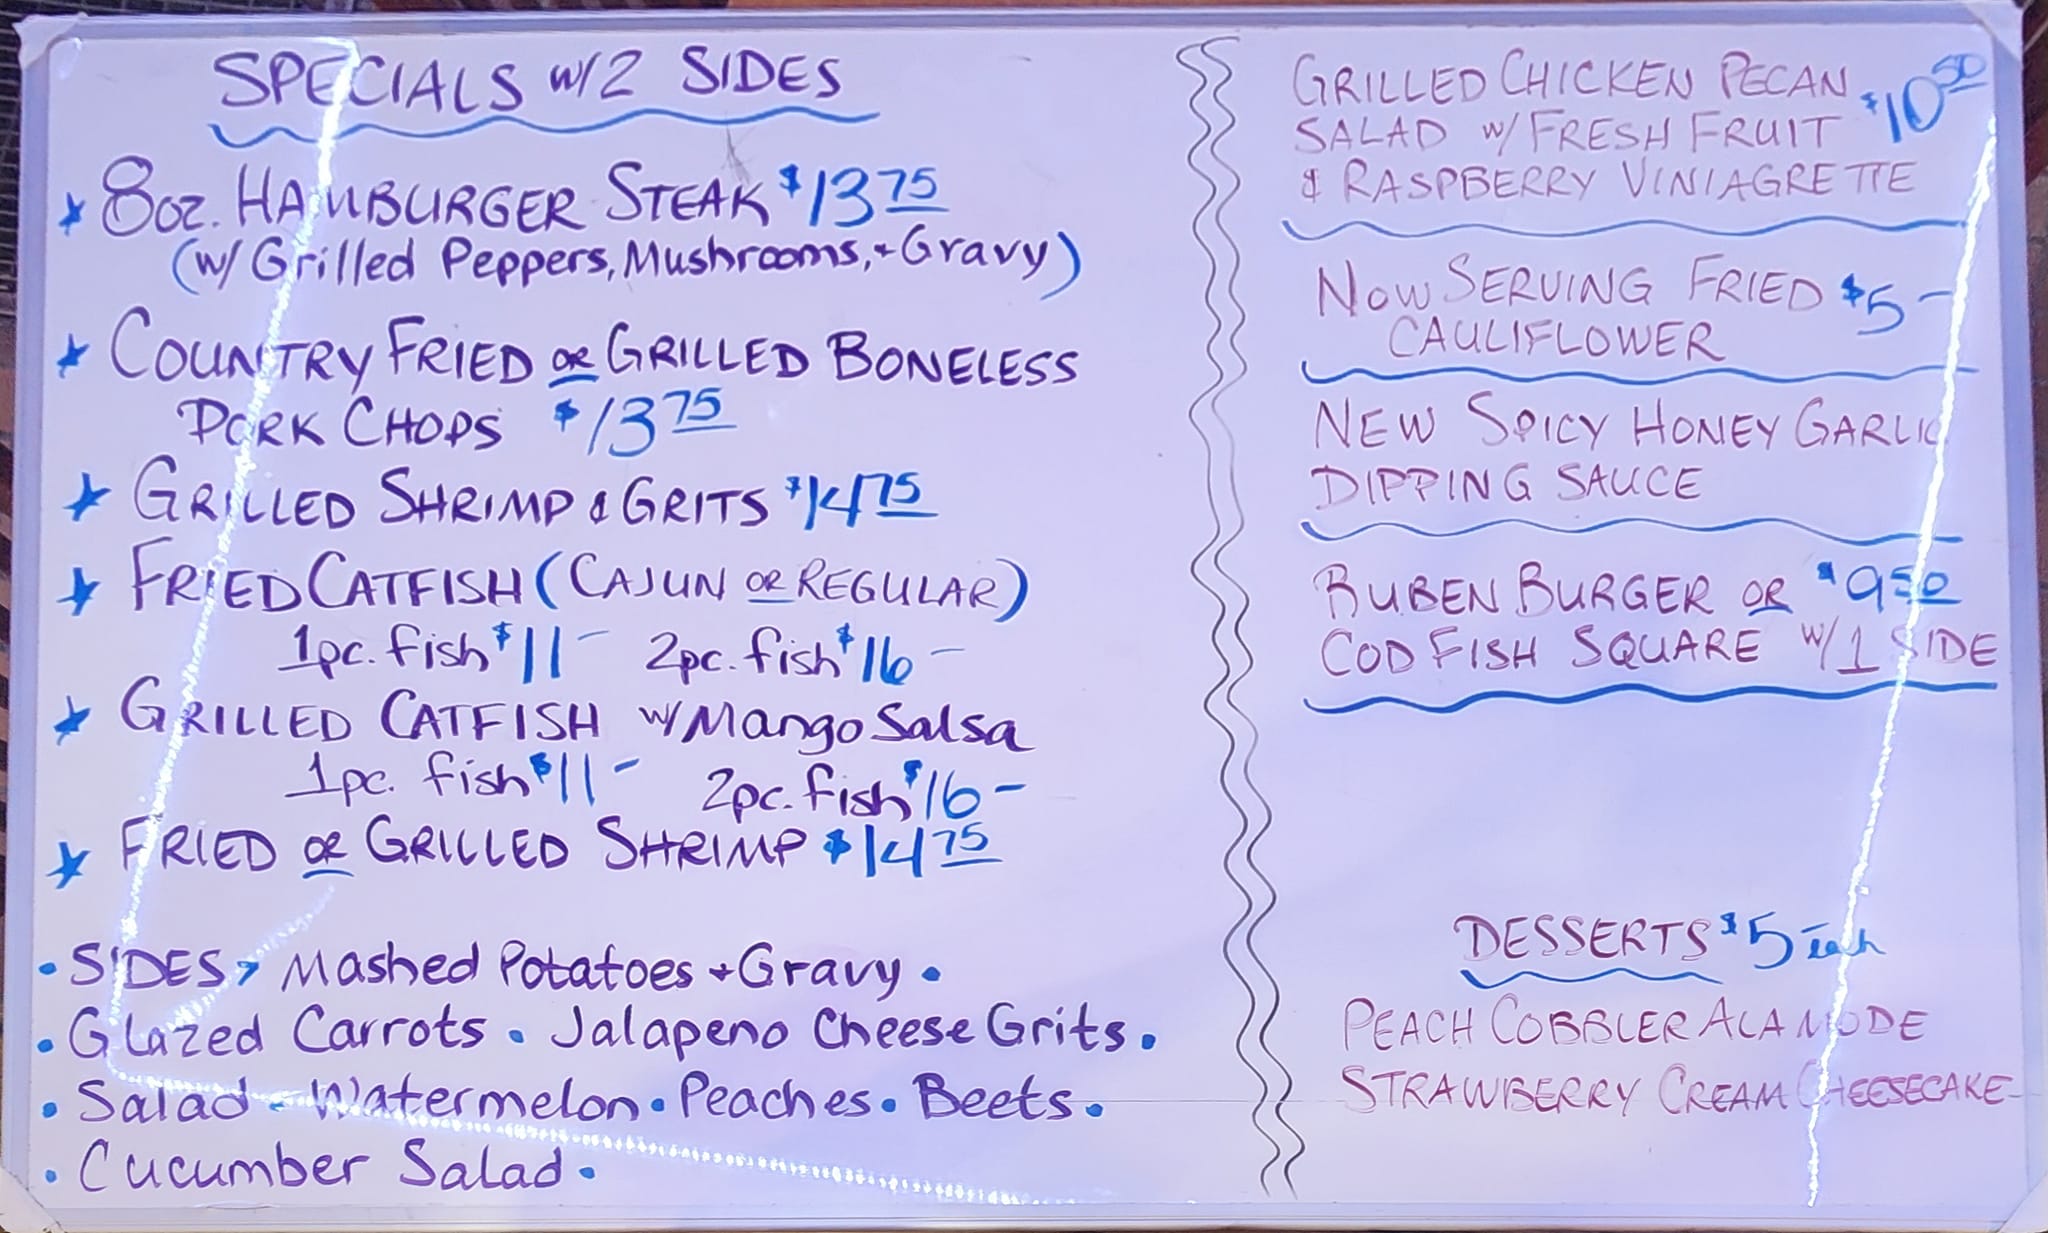 SPECIALS w/2 SIDES
8oz. HAMBURGER STEAK $13 75
(w/ Grilled Peppers, Mushrooms, + Gravy)
COUNTRY FRIED OR GRILLED BONELESS
PORK CHOPS $13 75
GRILLED SHRIMP & GRITS $14 75
FRIED CATFISH (CAJUN OR REGULAR)
1pc. fish $11- 2pc. fish $16-
GRILLED CATFISH w/Mango Salsa
1pc. fish $11- 2pc. fish $16-
FRIED OR GRILLED SHRIMP $14 75
• SIDES > Mashed Potatoes + Gravy •
• Glazed Carrots • Jalapeno Cheese Grits •
• Salad • Watermelon • Peaches • Beets •
• Cucumber Salad •
GRILLED CHICKEN PECAN $10 50
SALAD w/ FRESH FRUIT
& RASPBERRY VINIAGRETTE
NOW SERVING FRIED $5-
CAULIFLOWER
NEW SPICY HONEY GARLIC
DIPPING SAUCE
RUBEN BURGER OR $9 50
COD FISH SQUARE w/1 SIDE
DESSERTS $5 each
PEACH COBBLER ALA MODE
STRAWBERRY CREAM CHEESECAKE